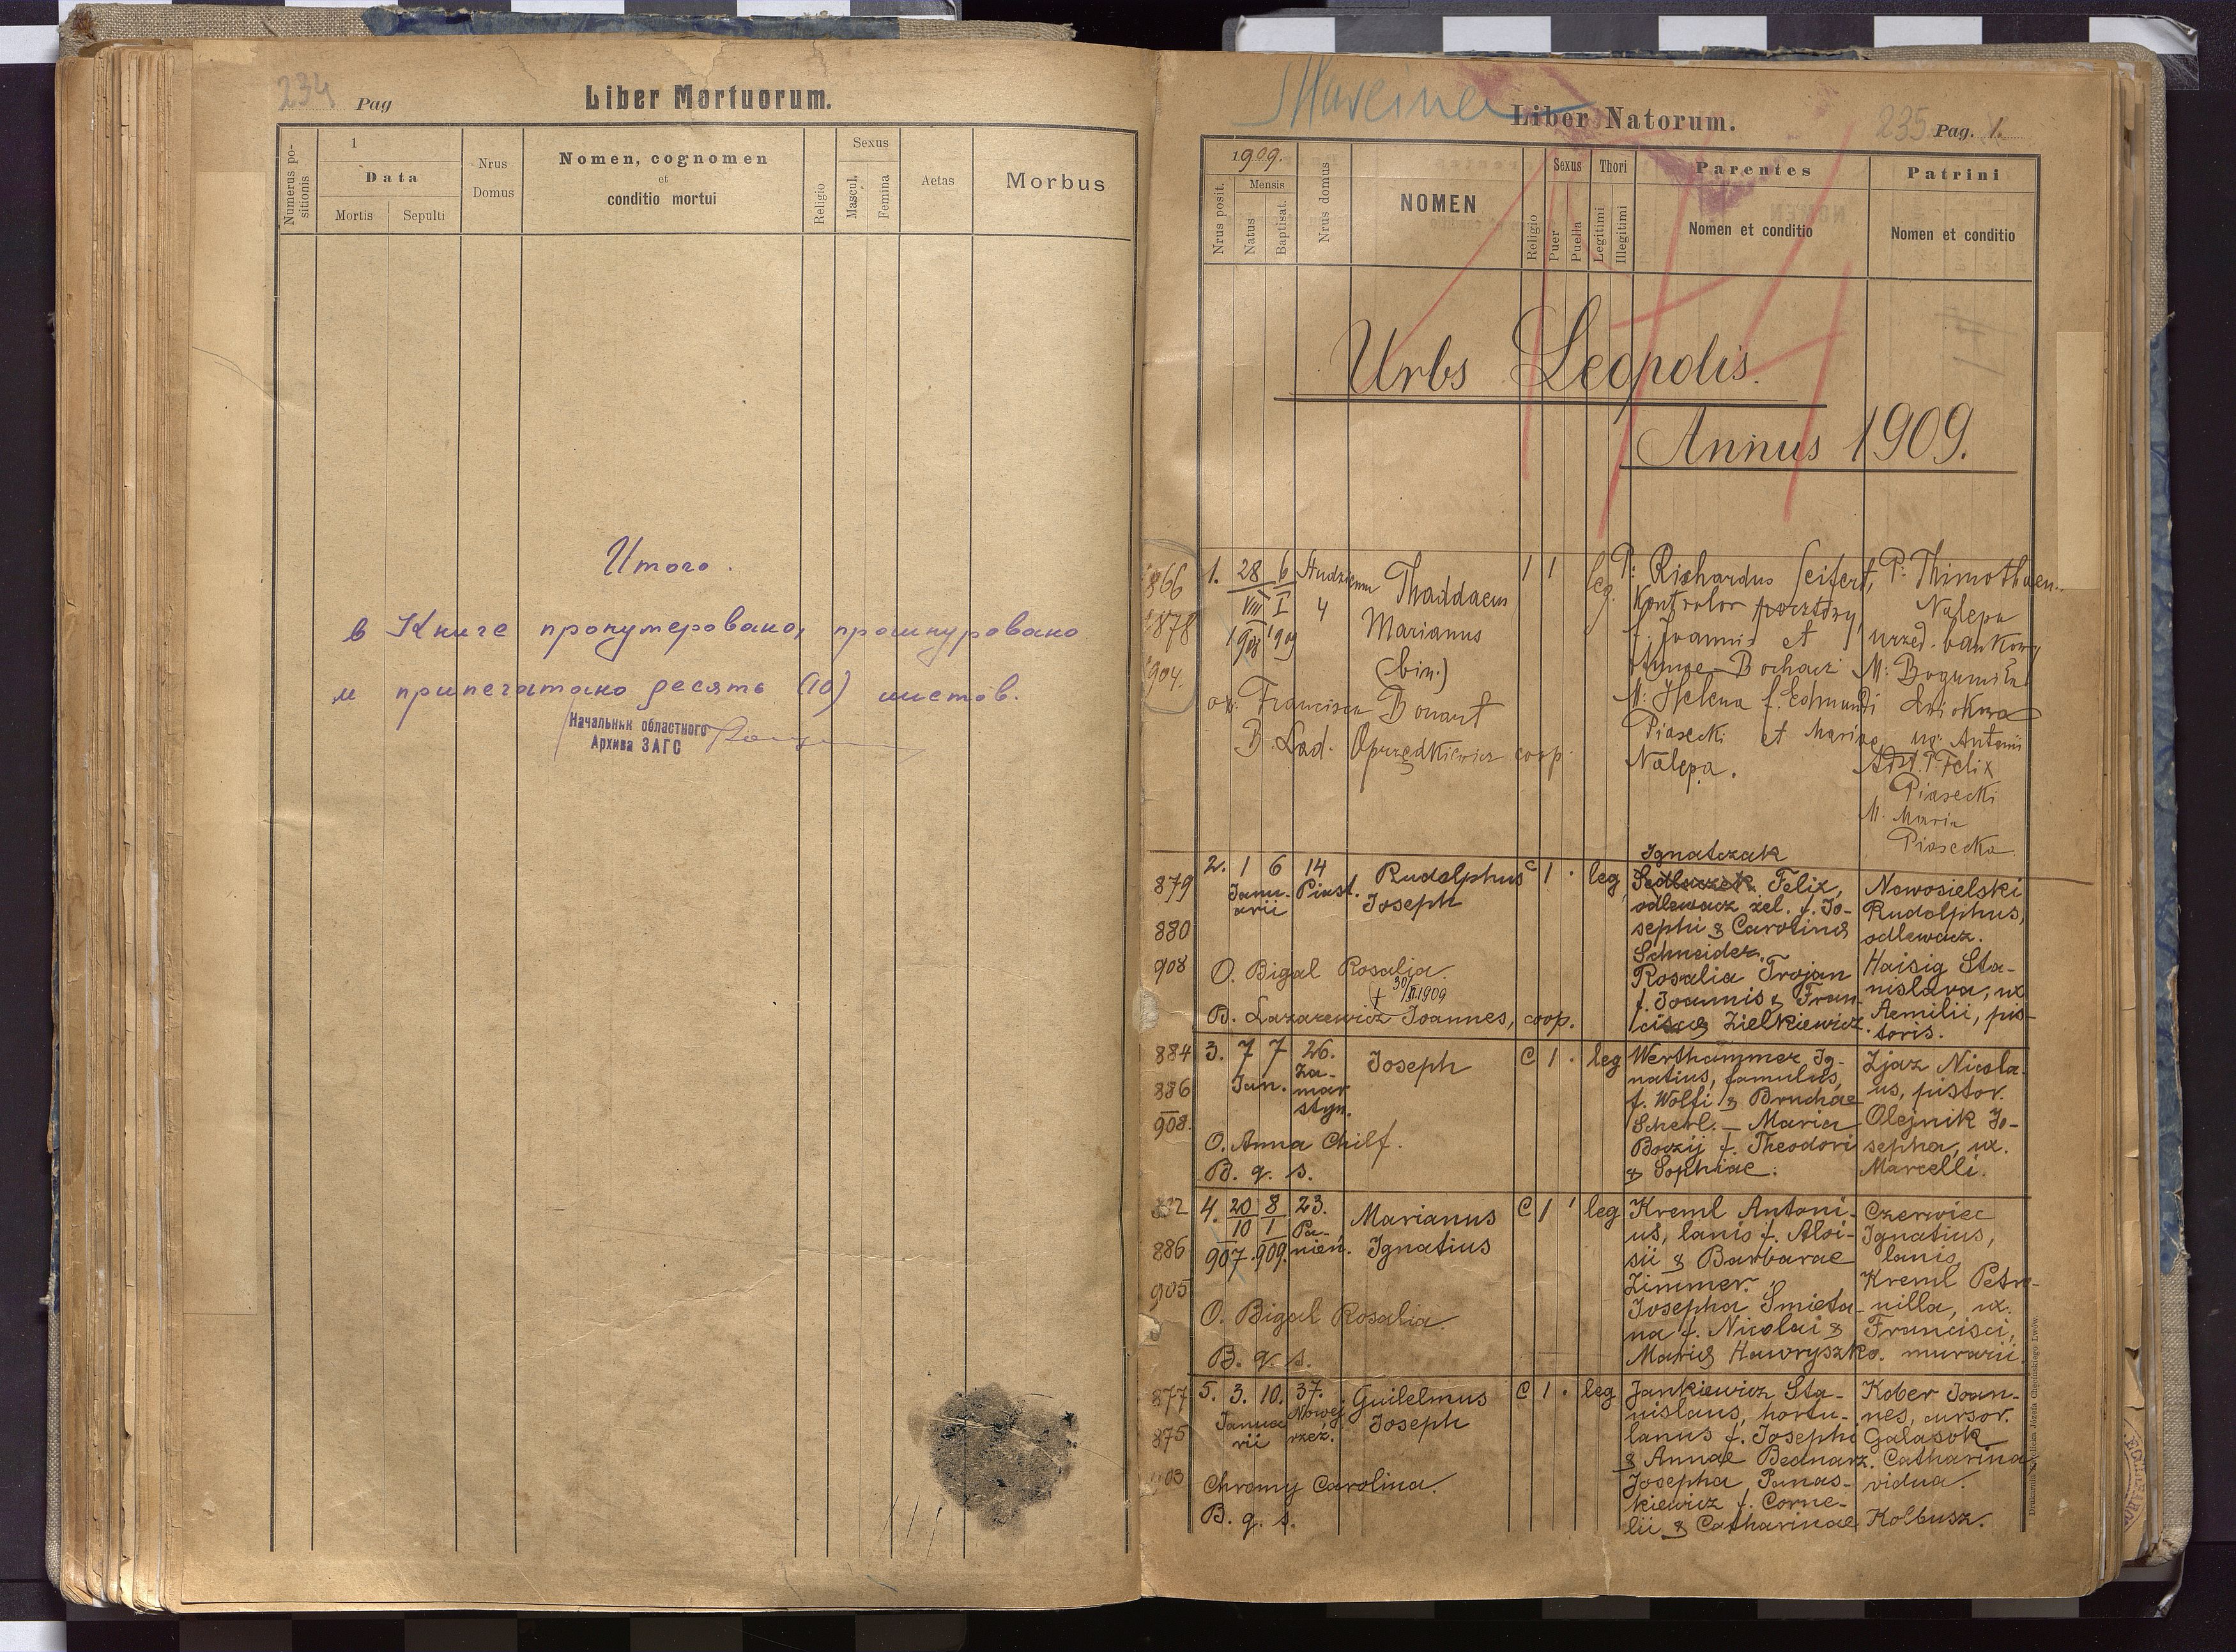 234 Pag
Liber Mortuorum.
Numerus positionis
1
Data
Mortis
Sepulti
Nrus Domus
Nomen, cognomen
et
conditio mortui
Religio
Sexus
Mascul.
Femina
Aetas
Morbus
Итого.
в Книге пронумеровано, прошнуровано
и припечатано десять (10) листов.
Начальник областного
Архива ЗАГС
Liber Natorum.
235 Pag. 1.
1909.
Nrus posit.
Mensis
Natus
Baptisat.
Nrus domus
NOMEN
Religio
Sexus
Puer
Puella
Thori
Legitimi
Illegitimi
Parentes
Nomen et conditio
Patrini
Nomen et conditio
Urbs Leopolis.
Annus 1909.
866
878
904.
1. 28 6
VIII I
1908 1909
4
Thaddaeus
Marianus
(bin.)
1 1
leg.
P: Richardus Seifert,
Kontrolor pocztowy,
f. Joannis et
Bochacz
M: Helena f. Edmundi
Piasecki et Mariae
Nalepa.
P: Thimothaeus
Nalepa
urzęd. bankowy
M: Bogumiła
ux. Antonii
Ast. P. Felix
Piasecki
M. Maria
Piasecka
ox: Francisca Bonart
B. Lad. Oprzędkiewicz coop.
879
880
908
2. 1 6 14
Januarii
Piast.
Rudolphus
Joseph
c 1 . leg
Ignatczak
Felix,
odlewacz żel. f. Jo-
sephi & Carolinæ
Schneider.
Rosalia Trojan
f. Joannis & Fran-
ciscæ Zielkiewicz.
Nowosielski
Rudolphus,
odlewacz.
Haisig Sta-
nislava, ux
Aemilii, pis-
toris.
O. Bigal Rosalia.
B. Lazarewicz Joannes, coop.
884
886
908.
3. 7 7 26.
Jan.
Za-
mar
styn.
Joseph
C 1 . leg
Werthammer Ig-
natius, famulus,
f. Wolfi & Bruchae
Scherl. — Maria
f. Theodori
& Sophiae.
Zjaz Nicola-
us, pistor.
Olejnik Jo-
sepha, ux.
Marcelli.
O. Anna Chilf.
B. q. s.
886
905
4. 20 8 23.
10 1
907. 909.
Pa-
nień.
Marianus
Ignatius
C 1 ' leg
Kreml Antoni-
us, lanio f. Aloi-
sii & Barbarae
Zimmer.
Josepha Śmieta-
na f. Nicolai &
Mariæ Hawryszko.
Czerwiec
Ignatius,
lanio
Kreml Petro-
nilla, ux.
Francisci,
murarii.
O. Bigal Rosalia.
B. q. s.
877
875
5. 3. 10. 37.
Januarii
Nowej
rzeź.
Guilelmus
Joseph
C 1 . leg
Jankiewicz Sta-
nislaus, hortu-
lanus f. Josephi
& Annae Bednarz.
Josepha Panas-
kiewicz f. Corne-
lii & Catharinae
Kober Joan-
nes, cursor.
Galasok
Catharina
vidua.
Kolbusz.
Chromy Carolina.
B. q. s.